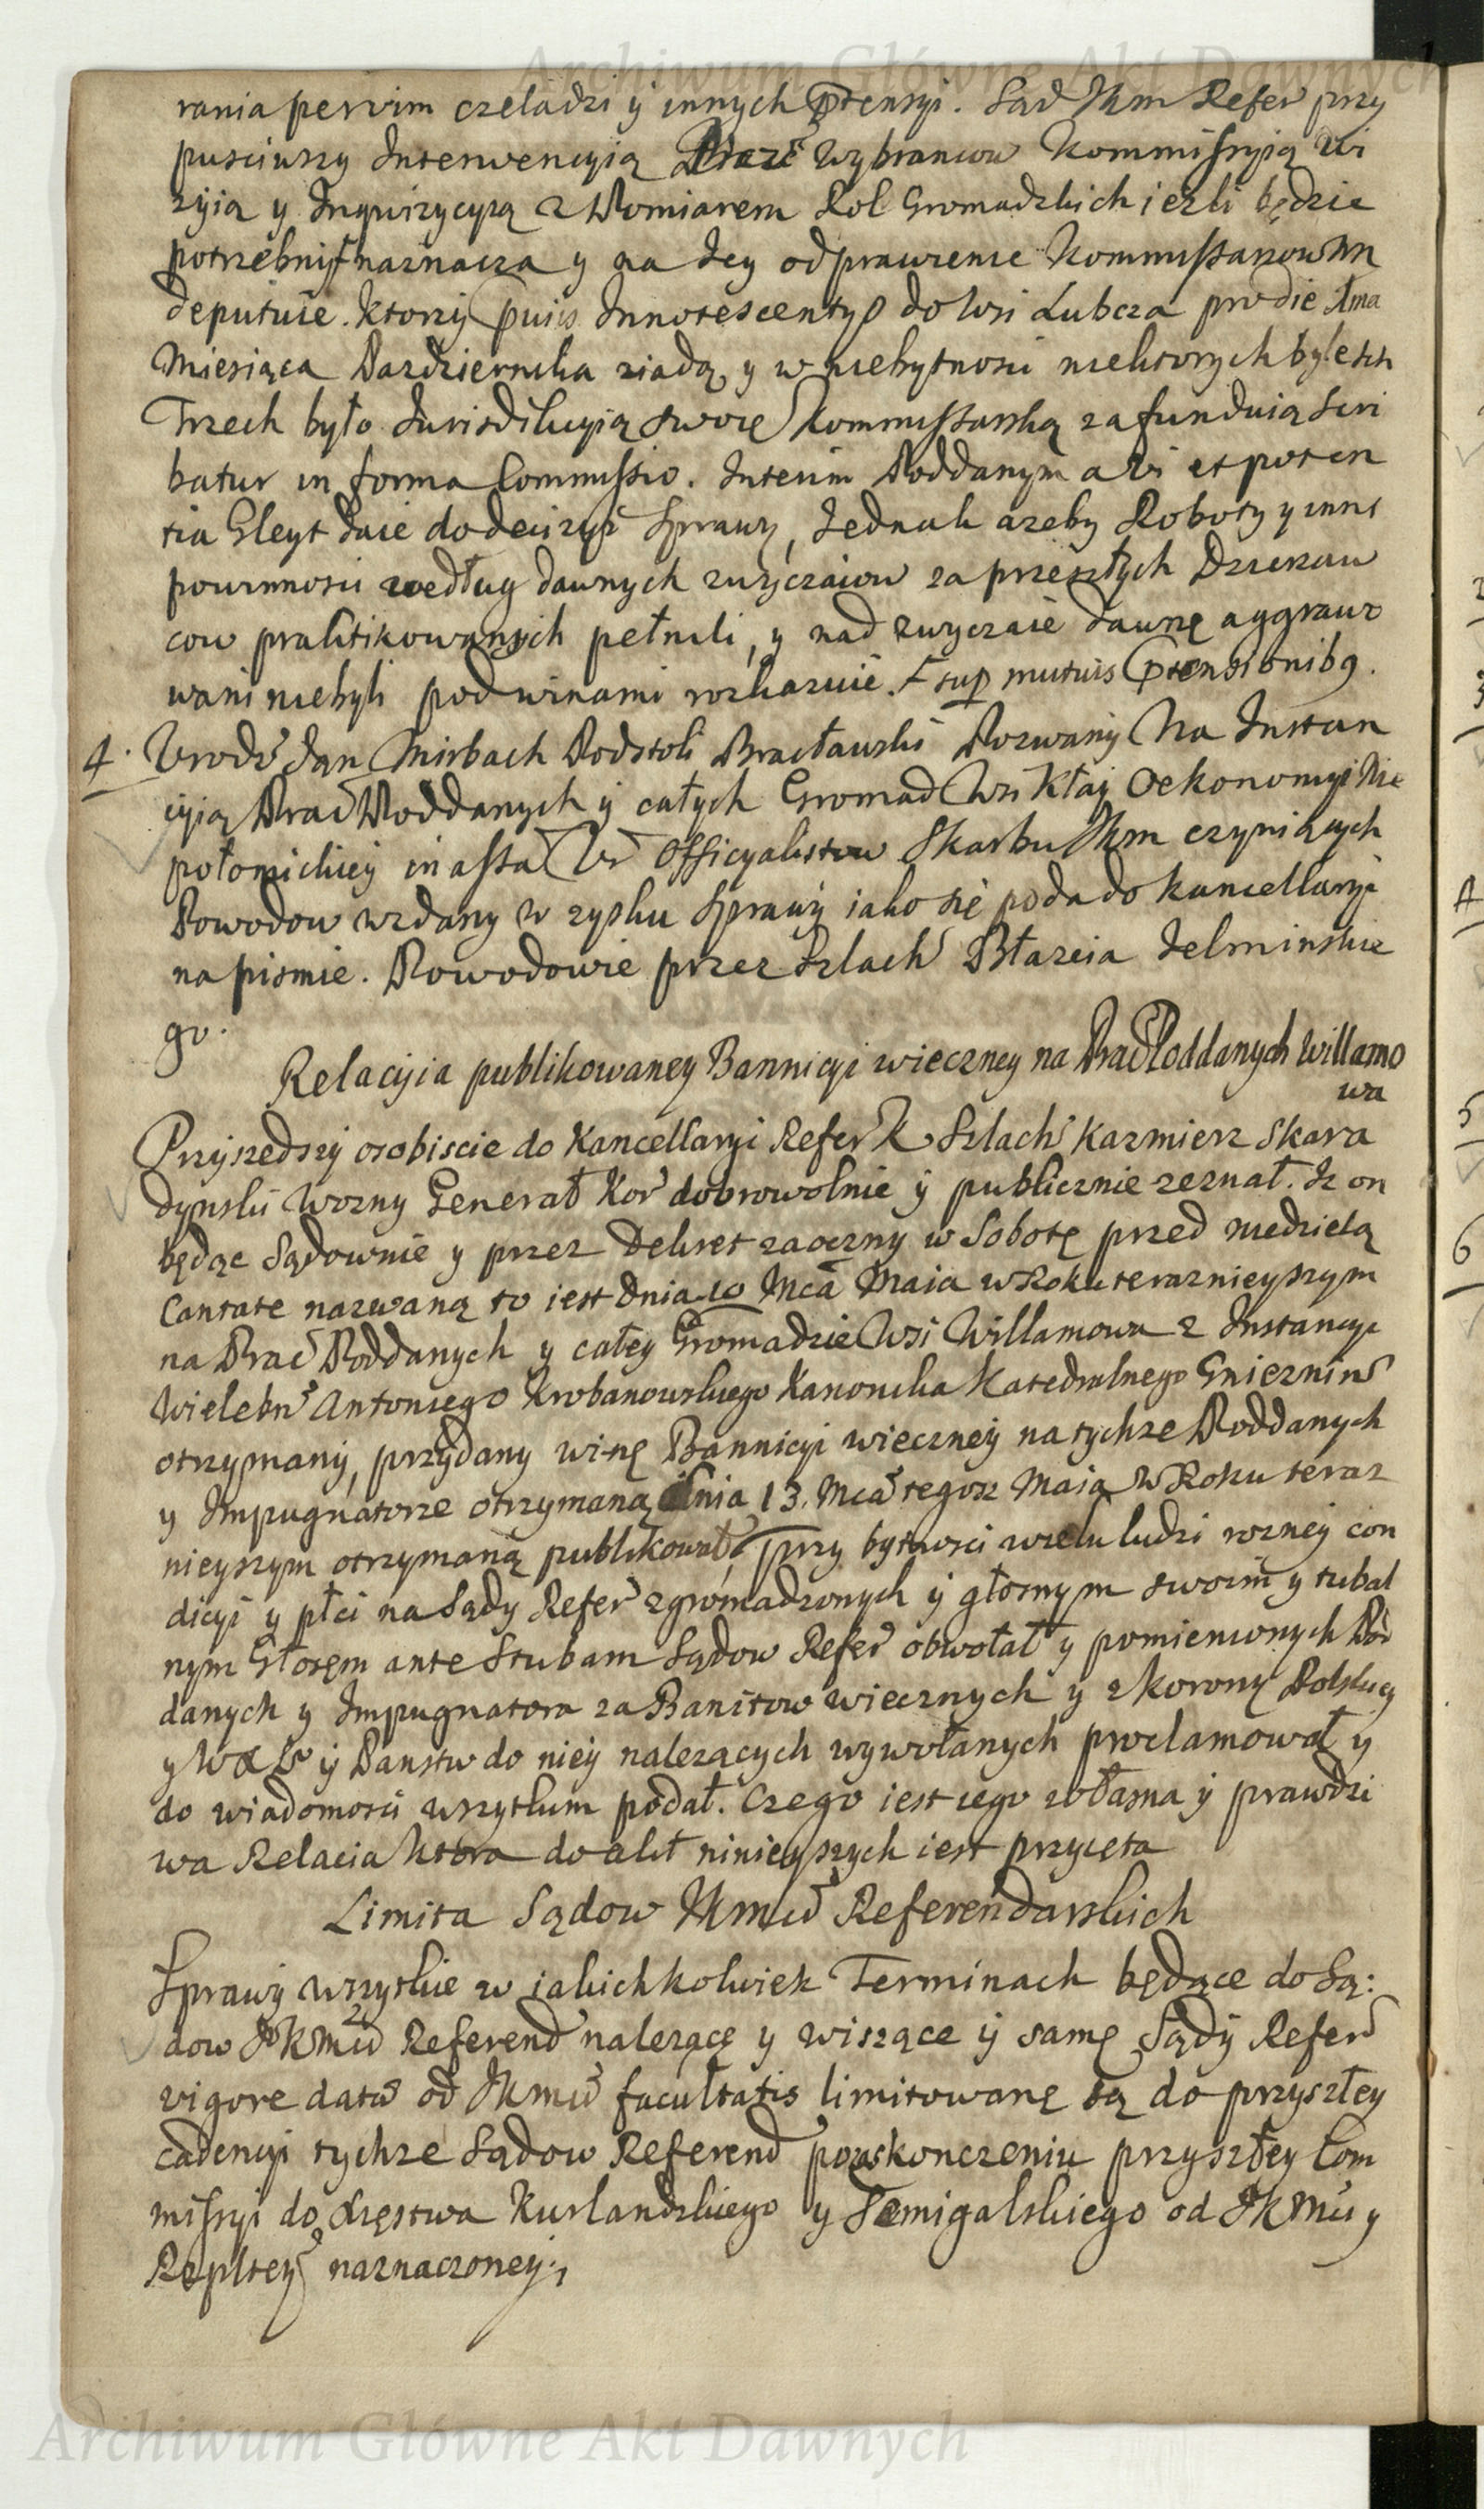 Archiwum Główne Akt Dawnych
rania perwim czeladzi ÿ innych ptensyi. Sąd Jkm Refer przy
pusciwszy Interwencyią Pracć Wybrancow Kommissyią wi
zyią y Inqwizycyią z Womiarem Rol Gromadzkich iezli będzie
potrzebni naznacza y na Jey odprawienie Kommissarzow Nn
deputuie. Ktorzÿ puiis Innotescentys do Wsi Lubcza pro die Ama
Miesiąca Pazdziernika ziadą y w niebytnosci niektorych byle ich
Trzech było Jurisdikcyią swoię Kommissarską zafunduią Scri
batur in forma Commissio. Interim Poddanym a vi et poten
tia Gleyt daie do decizyi Sprawy, Jednak azeby Roboty y inne
powinnosci według dawnych zwyczaiow za przeszłych Dzierzaw
cow praktikowanych pełnili, y nad zwyczaie dawnę aggrawo
wani niebyli pod winami rozkazuie. F sup mutuis ptensionibg.
4. Urodz Jan Mirbach Podstoli Bracławski Pozwany Na Instan
cyią Prać Poddanych ÿ całych Gromad Wsi Kłaÿ Oekonomyi Nie
połomickieÿ in assa Ur Officyalistow Skarbu Jkm czyniących
Powodow wzdany w zysku Sprawÿ iako się poda do Kancellaryi
na pismie. Powodowie przez Szlach Błazeia Jelminskie
go.
Relacÿia publikowaney Bannicyi wieczney na Prać Poddanych Willamo
wa
Przÿszedszÿ osobiscie do Kancellaryi Refer K. Szlach Kazmierz Skara
dynski Wozny Generał Kor dobrowolnie ÿ publicznie zeznał. Iz on
będąc Sądownie y przez Dekret zaoczny w Sobotę przed niedzielą
Cantate nazwaną to iest dnia 10 Mca Maia w Roku teraznieyszym
na Prać Poddanych y całey Gromadzie Wsi Willamowa z Instancyi
Wielebn Antoniego Krobanowskiego Kanonika Katedralnego Gniezninś
otrzymanÿ, przÿdany winę Bannicyi wieczneÿ na tychze Poddanych
y Impugnatorze otrzymaną dnia 13. Mca tegoz Maia w Roku teraz
nieyszym otrzymaną publikował, przy bytnosci wielu ludzi rozneÿ con
dicyi y płci na Sądy Refer zgromadzonych ÿ głosnym swoim y tubal
nym Głosęm ante Stubam Sądow Refer obwołał y pomienionych Pod
danych y Impugnatora za Banitow wiecznych y z Korony Polskiey
y W X L ÿ Panstw do nieÿ nalezacych wywołanych proclamował y
do wiadomosci wszytkim podał. Czego iest iego własna ÿ prawdzi
wa Relacia ktora do akt ninieyszych iest przyięta
Limita Sądow Jkmci Referendarskich
Sprawÿ wszytkie w iakichkolwiek Terminach będące do Są:
dow JKMci Referend nalezącę y wiszące ÿ samę Sądÿ Refer
vigore data od Jkmci facultatis limitowanę są do przyszłey
cadencyi tychze Sądow Referend po zaskonczeniu przyszłey Com
missyi do Xięstwa Kurlandzkiego y Semigalskiego od JKMci y
Rzpltey naznaczoney;
Archiwum Główne Akt Dawnych